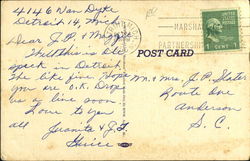 4146 Van Dyke
Detroit 14, Mich
Dear J.P. & 
Well this is the
speck in Detroit
She like fine. Hope
you are O.K. Drop
us a line soon
Love to you
all Juanita & J.T.
MARSHA
PARTNERSHIP
1 CENT 1
POST CARD
Mr. & Mrs. J.P. Slater
Route One
Anderson
S.C.